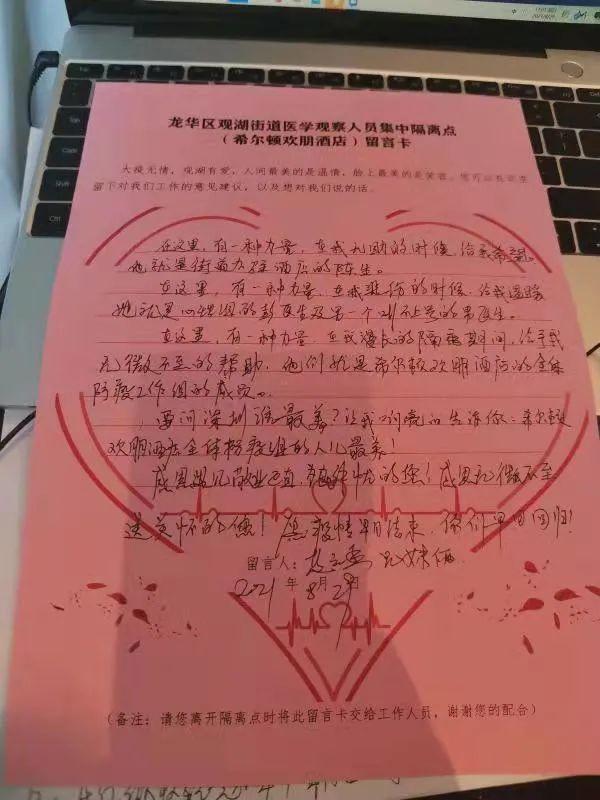 龙华区观湖街道医学观察人员集中隔离点
（希尔顿欢朋酒店）留言卡
大疫无情，观湖有爱，人间最美的是温情，脸上最美的是笑容。您可以在这里
留下对我们工作的意见建议，以及想对我们说的话。
在这里，有一种力量，在我无助的时候，给我希望。
他就是街道办驻酒店的陈生。
在这里，有一种力量，在我悲伤的时候，给我温暖
她就是心理组的彭医生及另一个叫不上名的男医生。
在这里，有一种力量，在我漫长的隔离期间，给予我
无微不至的帮助，他们就是希尔顿欢朋酒店的全体
防疫工作组的成员。
要问深圳谁最美？让我大声的告诉你：希尔顿
欢朋酒店全体防疫组的人儿最美！
感恩 敬业 的您！感恩无微不至
送关怀的您！愿疫情早日结束，你们早日回归！
留言人： 兄妹俩
2021年8月2日
（备注：请您离开隔离点时将此留言卡交给工作人员，谢谢您的配合）